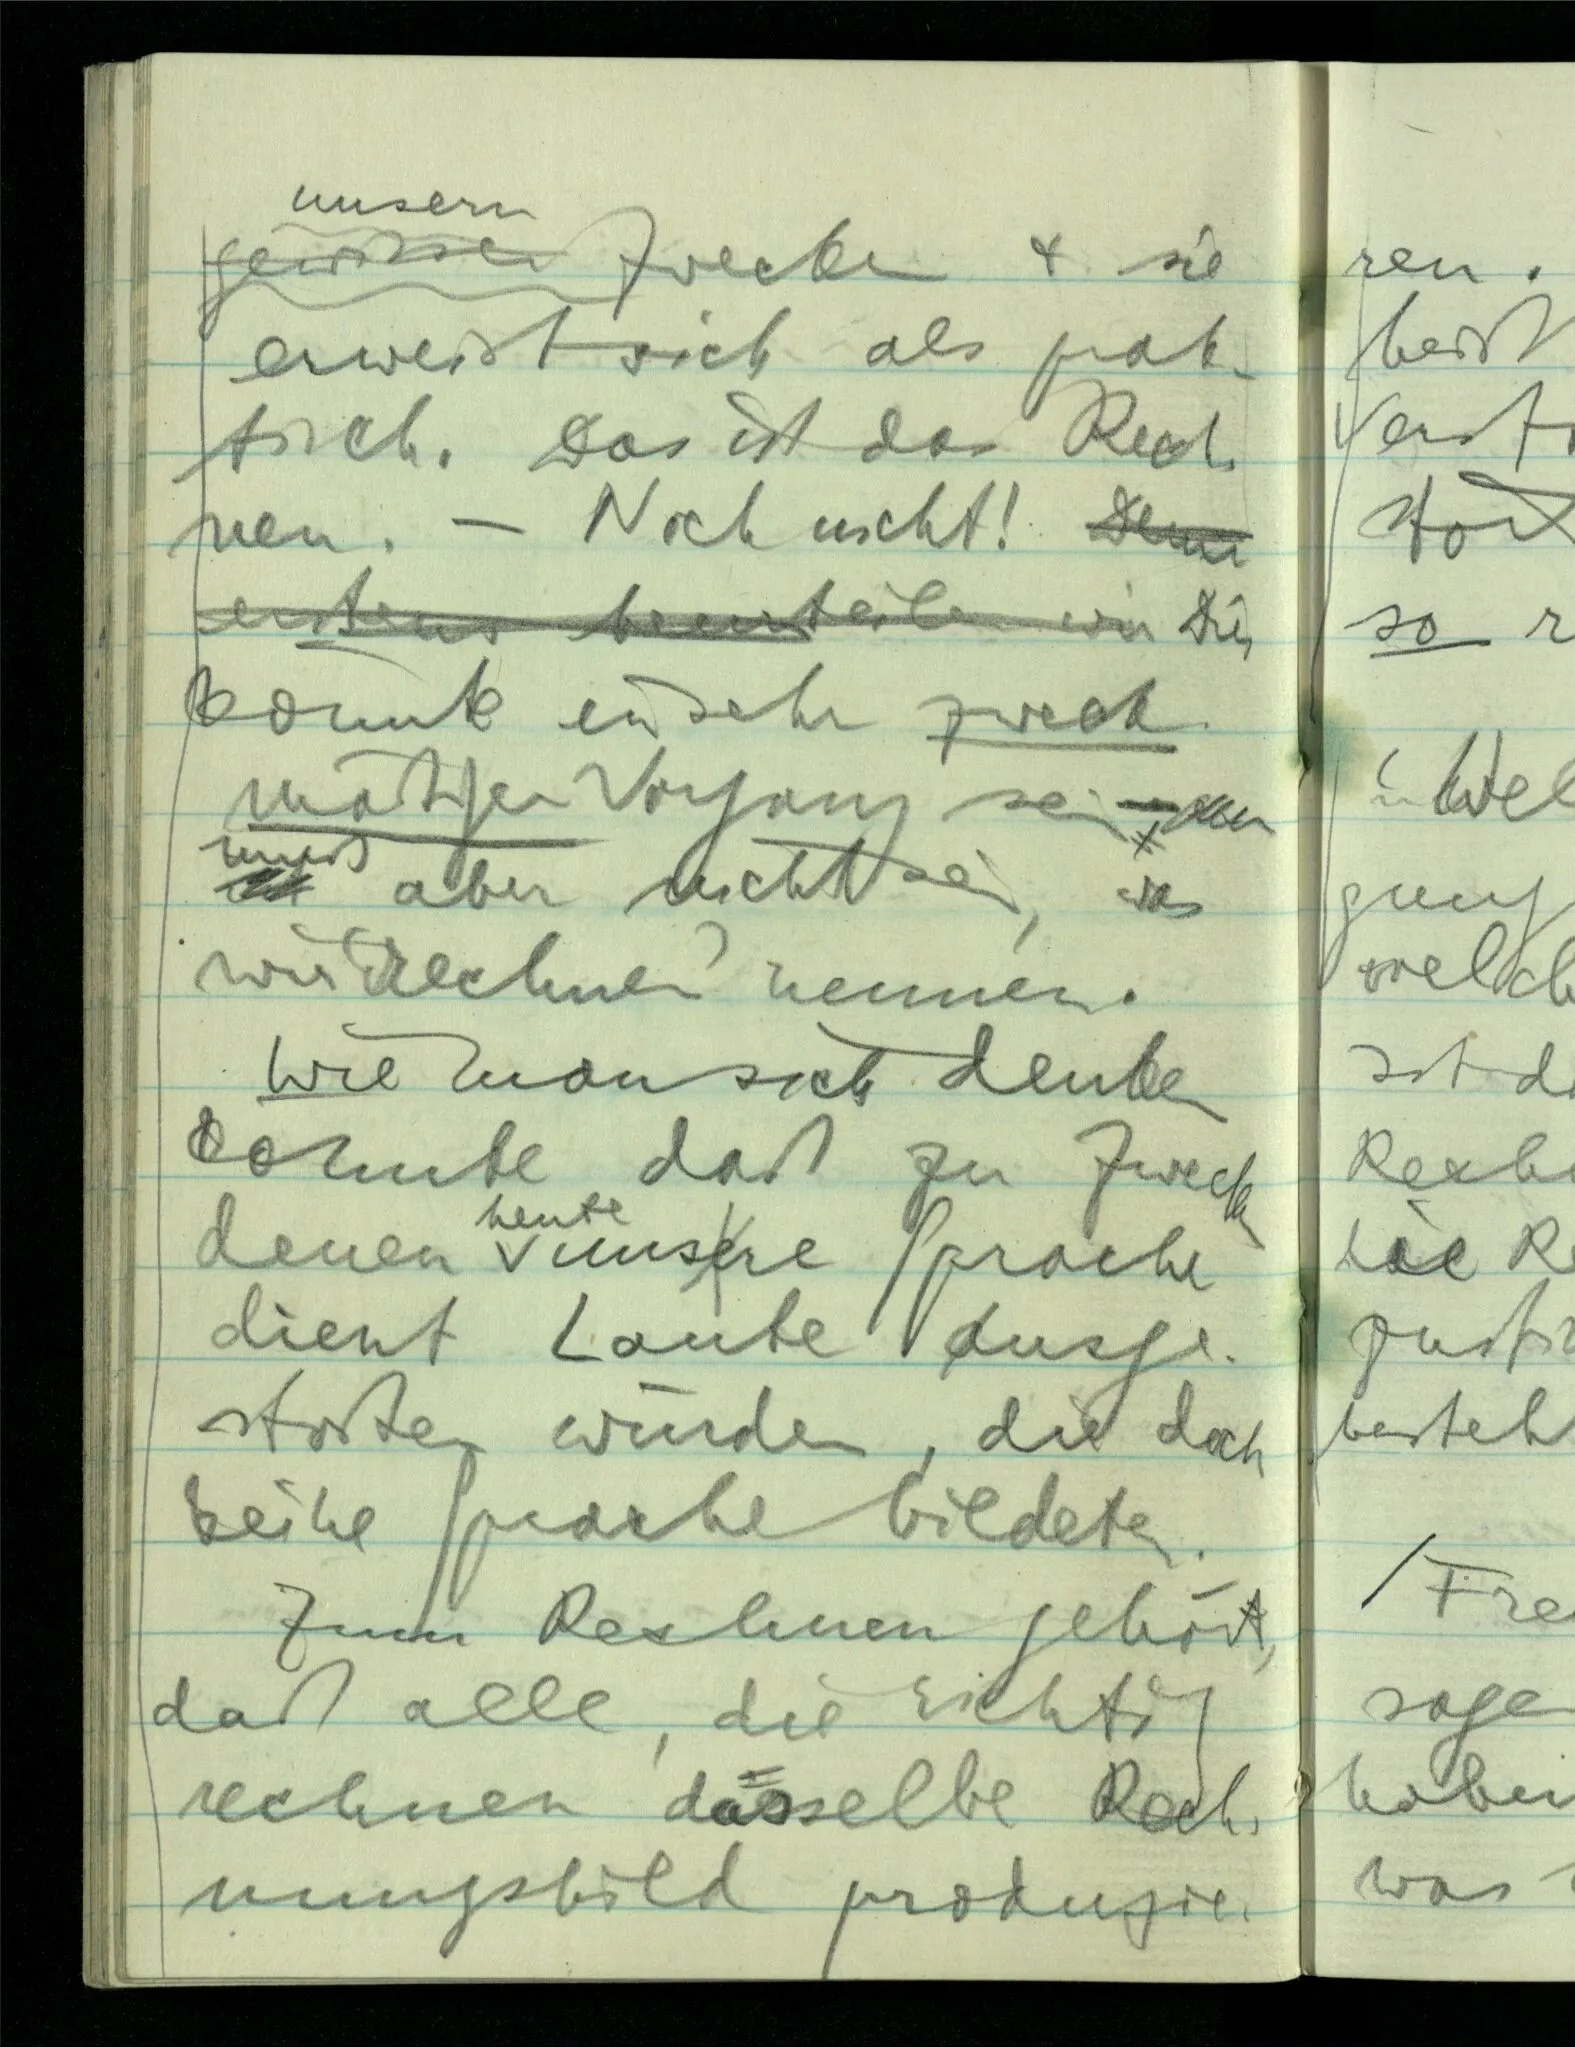 unsern
gewissen Zwecken & sie
erweist sich als prak-
tisch. Das ist das Rech-
nen. — Noch nicht! Denn
erstens beurteilen wir Dies
könnte ein sehr zweck-
mäßiger Vorgang sein, aber
muß aber nicht sein, was
wir ‘rechnen’ nennen.
Wie man sich denken
könnte daß zu Zwecken
denen heute unsre Sprache
dient Laute ausge-
stoßen würden, die doch
keine Sprache bildeten.
Zum Rechnen gehört,
daß alle, die richtig
rechnen dasselbe Rech-
nungsbild produzie-
ren.
heißt
so
Wel
gung
welch
ist
Rech
die Re
besteh
/ Fre
sage
haben
was